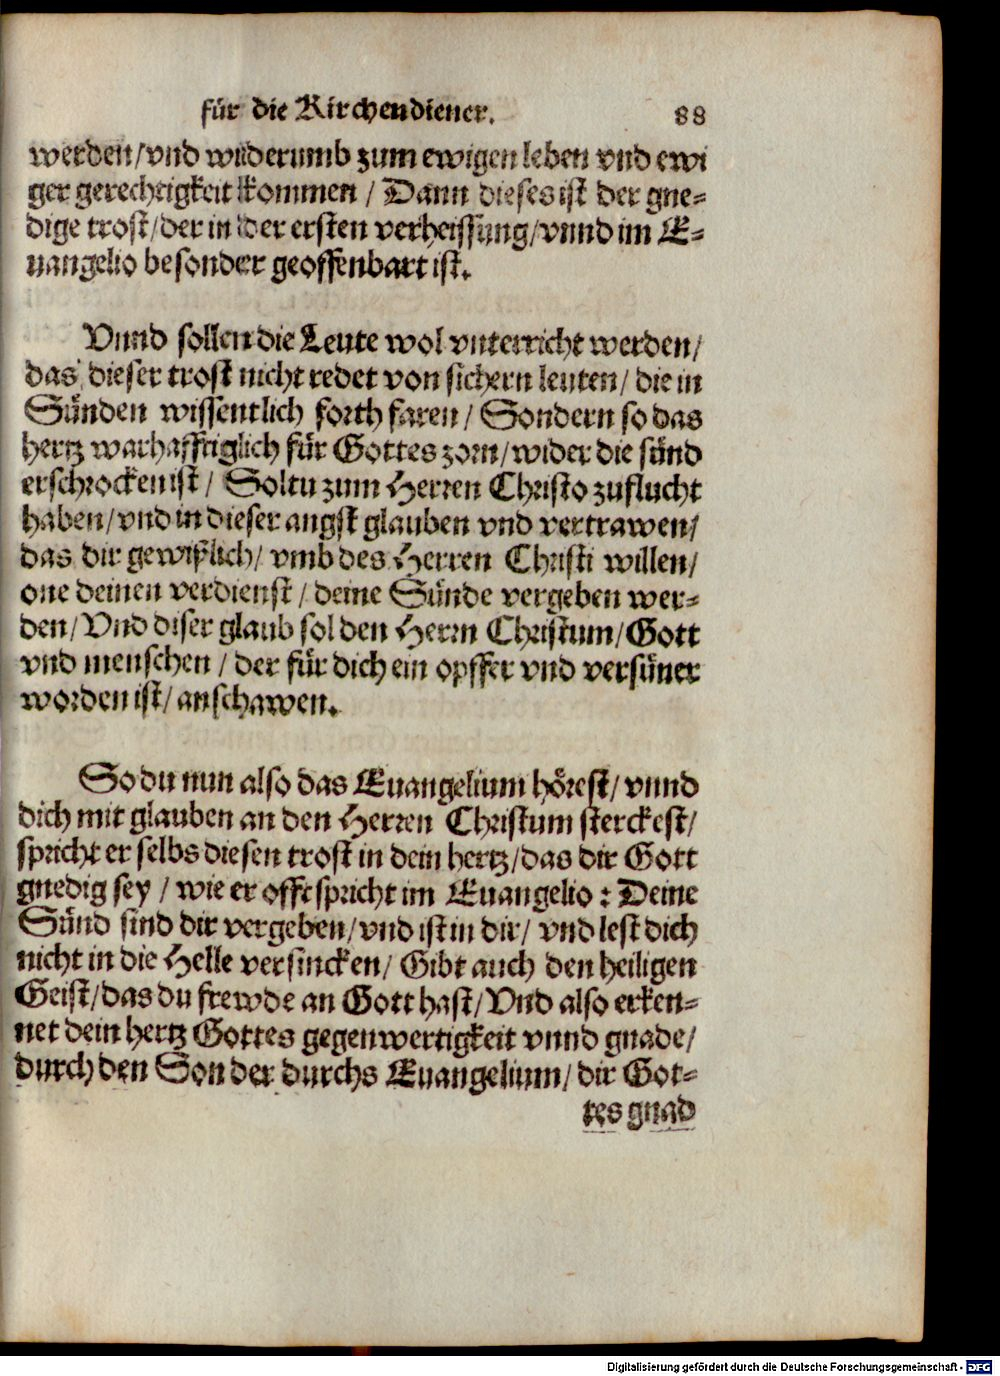 für die Kirchendiener. 88
werden/vnd widerumb zum ewigen leben vnd ewi
ger gerechtigkeit kommen / Dann dieses ist der gne-
dige trost/der in der ersten verheissung/vnnd im E-
uangelio besonder geoffenbart ist.
Vnnd sollen die Leute wol vnterricht werden/
das dieser trost nicht redet von sichern leuten/ die in
Sünden wissentlich forth faren / Sondern so das
hertz warhafftiglich für Gottes zorn/wider die sünd
erschrocken ist / Soltu zum Herren Christo zuflucht
haben/vnd in dieser angst glauben vnd vertrawen/
das dir gewißlich/ vmb des Herren Christi willen/
one deinen verdienst / deine Sünde vergeben wer-
den/ Vnd diser glaub sol den Herrn Christum/Gott
vnd menschen / der für dich ein opffer vnd versüner
worden ist/ anschawen.
So du nun also das Euangelium hörest/ vnnd
dich mit glauben an den Herren Christum sterckest/
spricht er selbs diesen trost in dein hertz/das dir Gott
gnedig sey / wie er offt spricht im Euangelio : Deine
Sünd sind dir vergeben/vnd ist in dir/ vnd lest dich
nicht in die Helle versincken/ Gibt auch den heiligen
Geist/das du frewde an Gott hast/Vnd also erken-
net dein hertz Gottes gegenwertigkeit vnnd gnade/
durch den Son der durchs Euangelium/ dir Got-
tes gnad
Digitalisierung gefördert durch die Deutsche Forschungsgemeinschaft - DFG